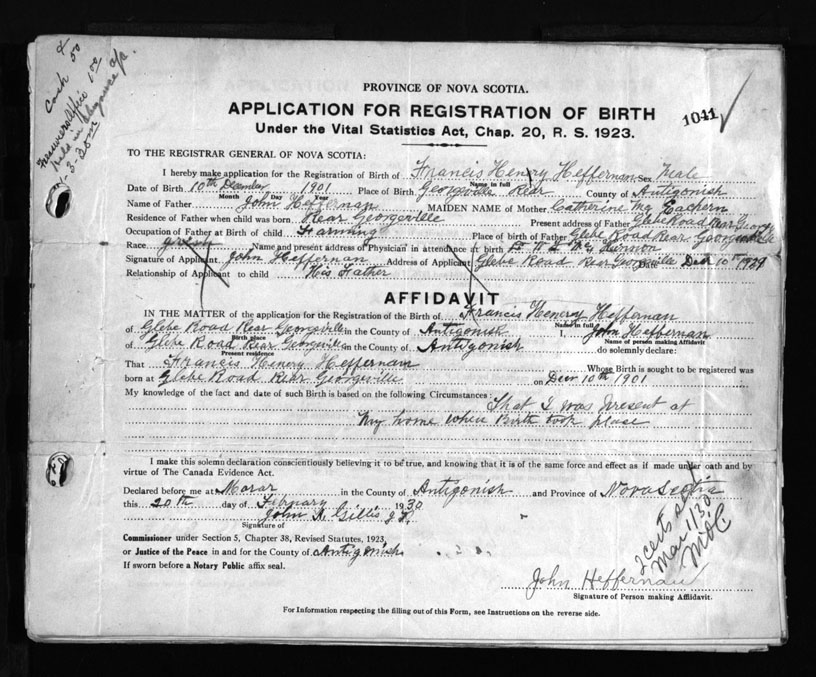 Cash 50
PROVINCE OF NOVA SCOTIA.
APPLICATION FOR REGISTRATION OF BIRTH
1041
Under the Vital Statistics Act, Chap. 20, R. S. 1923.
TO THE REGISTRAR GENERAL OF NOVA SCOTIA:
I hereby make application for the Registration of Birth of Francis Henry Heffernan Sex Male
Name in full
Date of Birth 10th December 1901 Place of Birth Georgeville Rear County of Antigonish
Month Day Year
Name of Father John Heffernan MAIDEN NAME of Mother Catherine Mc Eachern
Residence of Father when child was born Rear Georgeville Present address of Father Glebe Road Rear
Occupation of Father at Birth of child Farming Place of birth of Father Glebe Road Rear Georgeville
Race Name and present address of Physician in attendance at birth
Signature of Applicant John Heffernan Address of Applicant Glebe Road Rear Georgeville Date Dec 10th 1929
Relationship of Applicant to child His Father
AFFIDAVIT
IN THE MATTER of the application for the Registration of the Birth of Francis Henery Heffernan
Name in full
of Glebe Road Rear Georgeville in the County of Antigonish I, John Heffernan
Birth place
Name of person making Affidavit
of Glebe Road Rear Georgeville in the County of Antigonish do solemnly declare:
Present residence
That Francis Henry Heffernan Whose Birth is sought to be registered was
born at Glebe Road Rear Georgeville on Dec 10th 1901
My knowledge of the fact and date of such Birth is based on the following Circumstances: That I was present at
my home when Birth took place
I make this solemn declaration conscientiously believing it to be true, and knowing that it is of the same force and effect as if made under oath and by
virtue of The Canada Evidence Act.
Declared before me at Morar in the County of Antigonish and Province of Nova Scotia
this 20th day of Febuary 1930
John A. Gillis J.P.
Signature of
Commissioner under Section 5, Chapter 38, Revised Statutes, 1923,
or Justice of the Peace in and for the County of Antigonish
If sworn before a Notary Public affix seal.
2 certs
Mar 1/30
John Heffernan
Signature of Person making Affidavit.
For Information respecting the filling out of this Form, see Instructions on the reverse side.